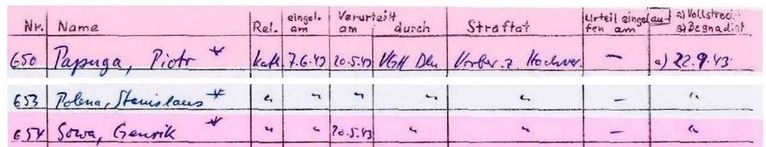 Nr. Name Rel. eingel. am Verurteilt am durch Straftat Urteil eingelaufen am a) Vollstreckt b) Begnadigt
650 Papuga, Piotr * kath 7.6.43 20.5.43 VGH Vorber. z. Hochver. — a) 22.9.43
653 Polena, Stanislaus * " " " " " — "
654 Sowa, Genrik * " " 20.5.43 " " — "